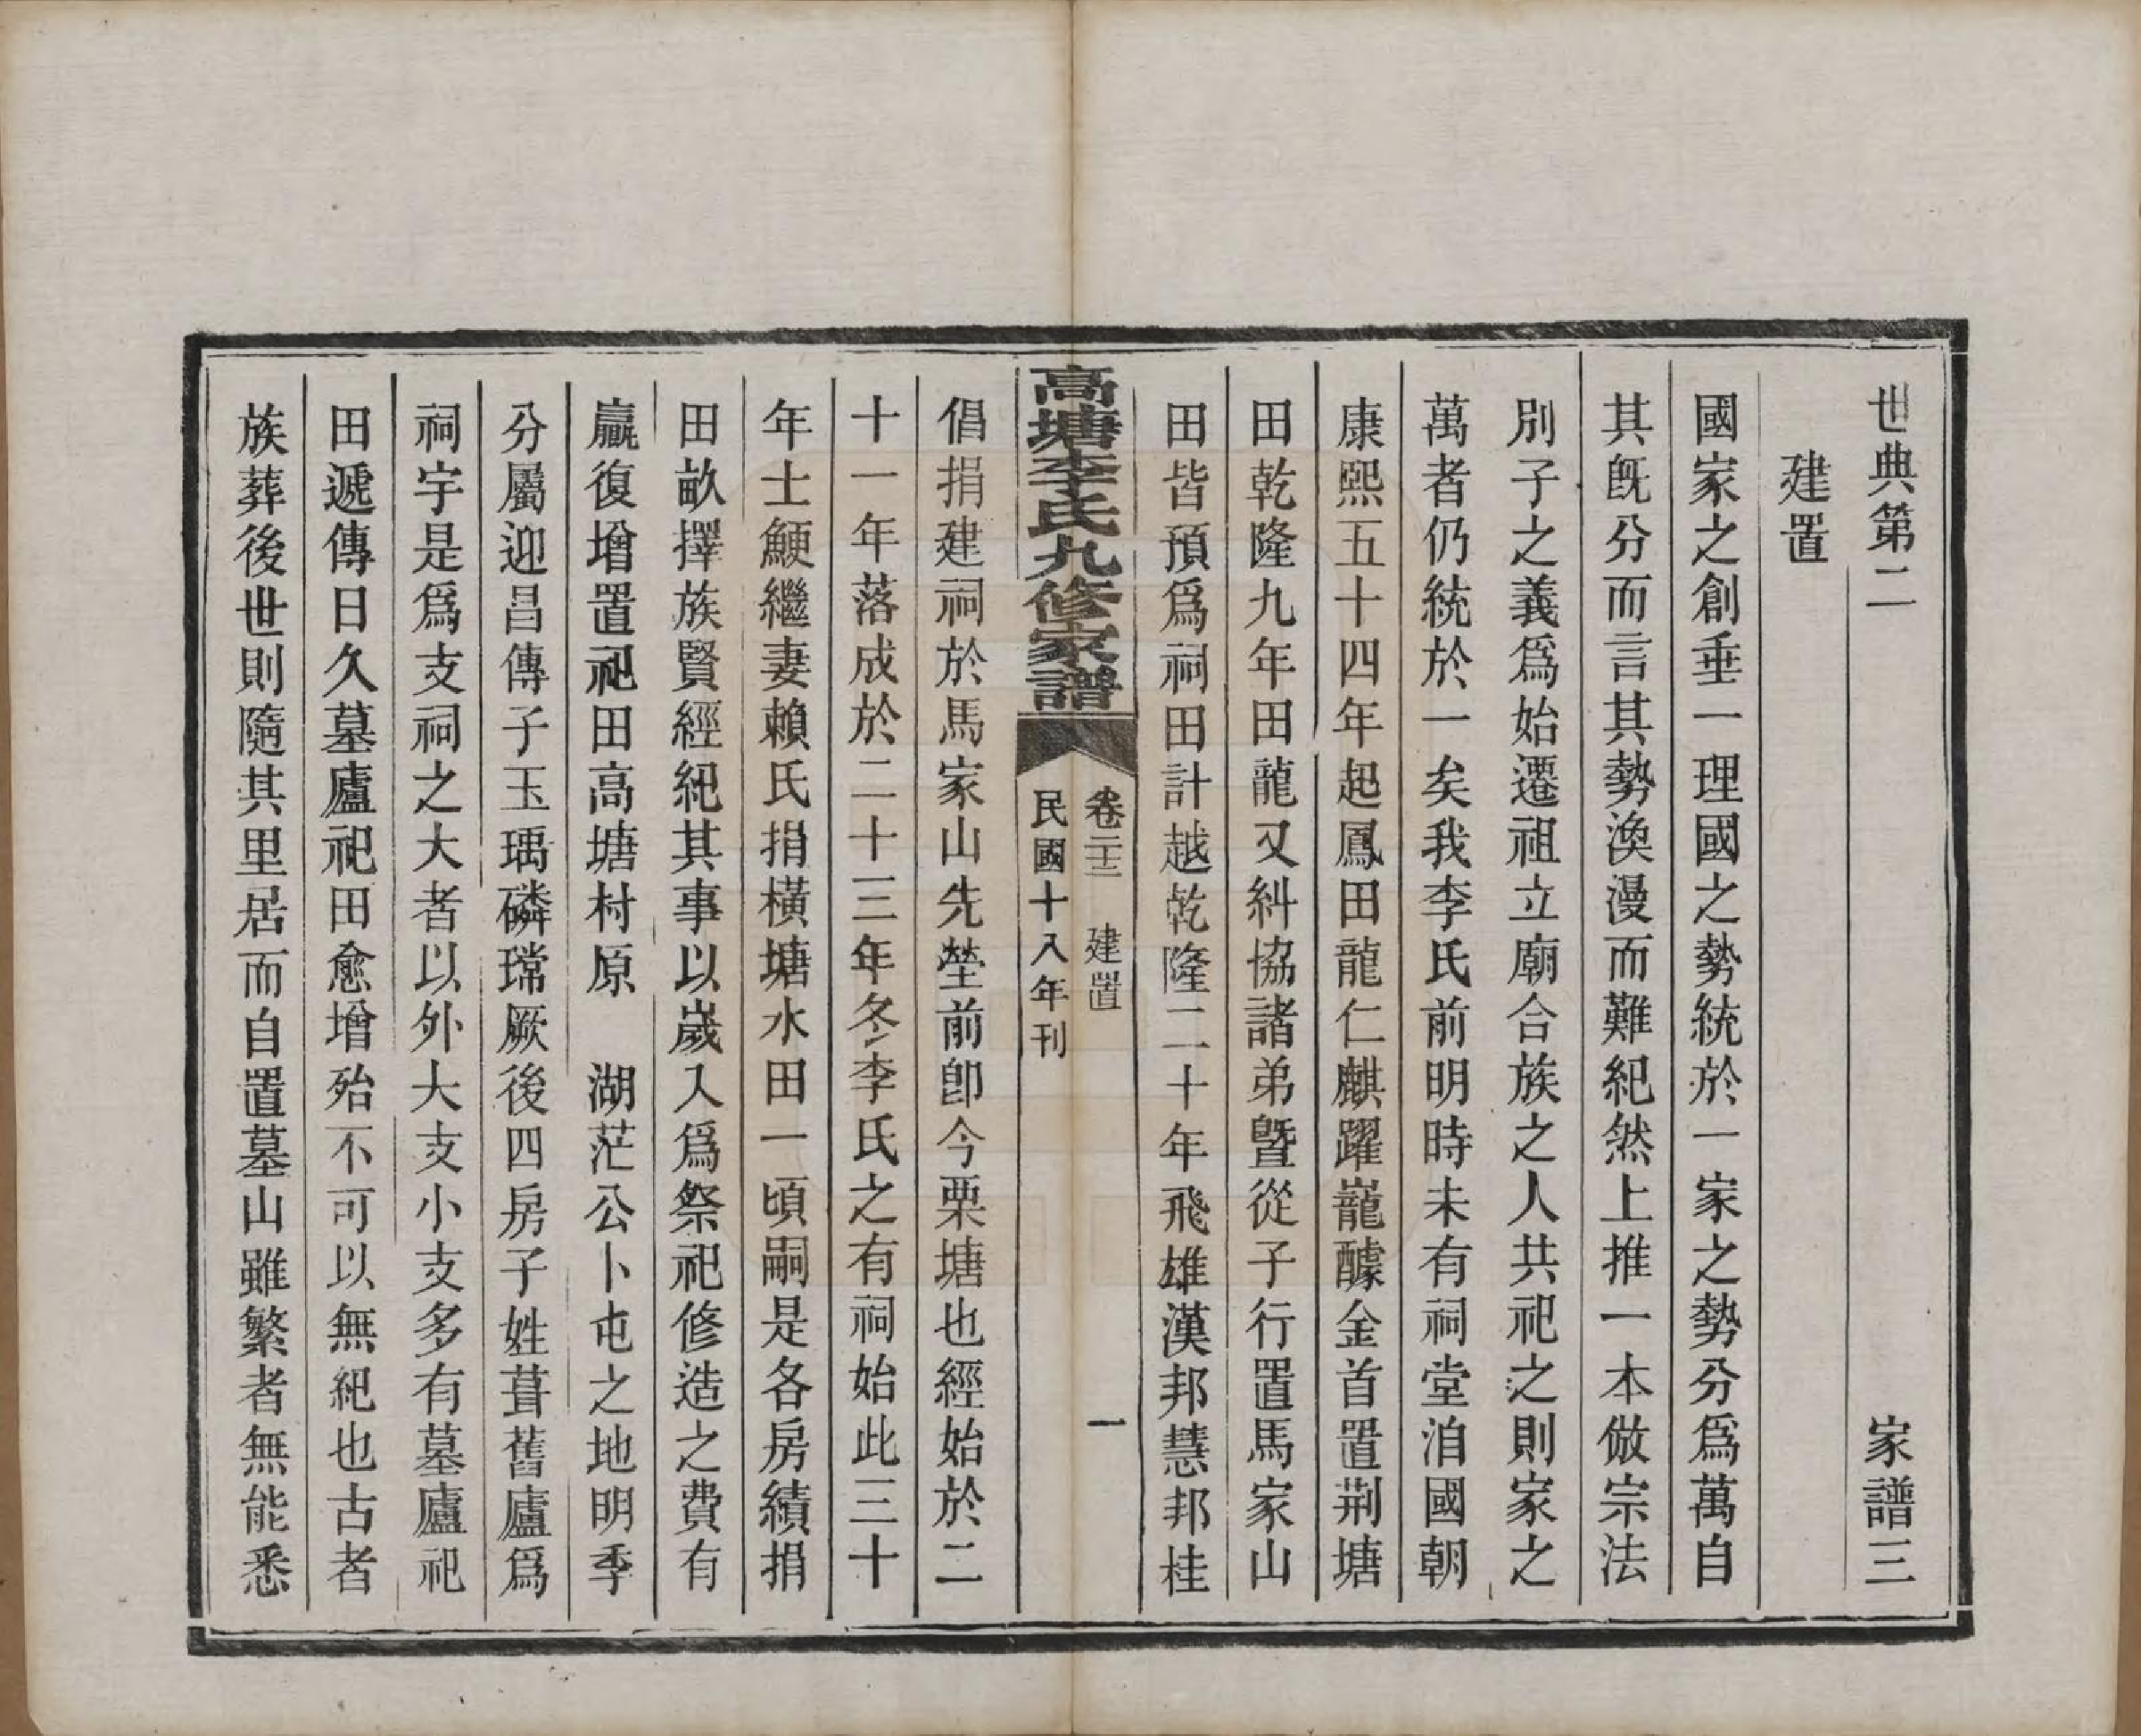 世典第二　家譜三
建置
國家之創垂一理國之勢統於一家之勢分爲萬自
其旣分而言其勢渙漫而難紀然上推一本倣宗法
別子之義爲始遷祖立廟合族之人共祀之則家之
萬者仍統於一矣我李氏前明時未有祠堂洎國朝
康熙五十四年起鳳田龍仁麒躍巃醵金首置荆塘
田乾隆九年田龍又糾協諸弟曁從子行置馬家山
田皆預爲祠田計越乾隆二十年飛雄漢邦慧邦桂
高塘李氏九修家譜
卷二十三　建置　一
民國十八年刊
倡捐建祠於馬家山先塋前卽今栗塘也經始於二
十一年落成於二十三年冬李氏之有祠始此三十
年士鯁繼妻賴氏捐橫塘水田一頃嗣是各房績捐
田畝擇族賢經紀其事以歲入爲祭祀修造之費有
贏復增置祀田高塘村原　湖茫公卜屯之地明季
分屬迎昌傳子玉瑀磷瑺厥後四房子姓葺舊廬爲
祠宇是爲支祠之大者以外大支小支多有墓廬祀
田遞傳日久墓廬祀田愈增殆不可以無紀也古者
族葬後世則隨其里居而自置墓山雖繁者無能悉